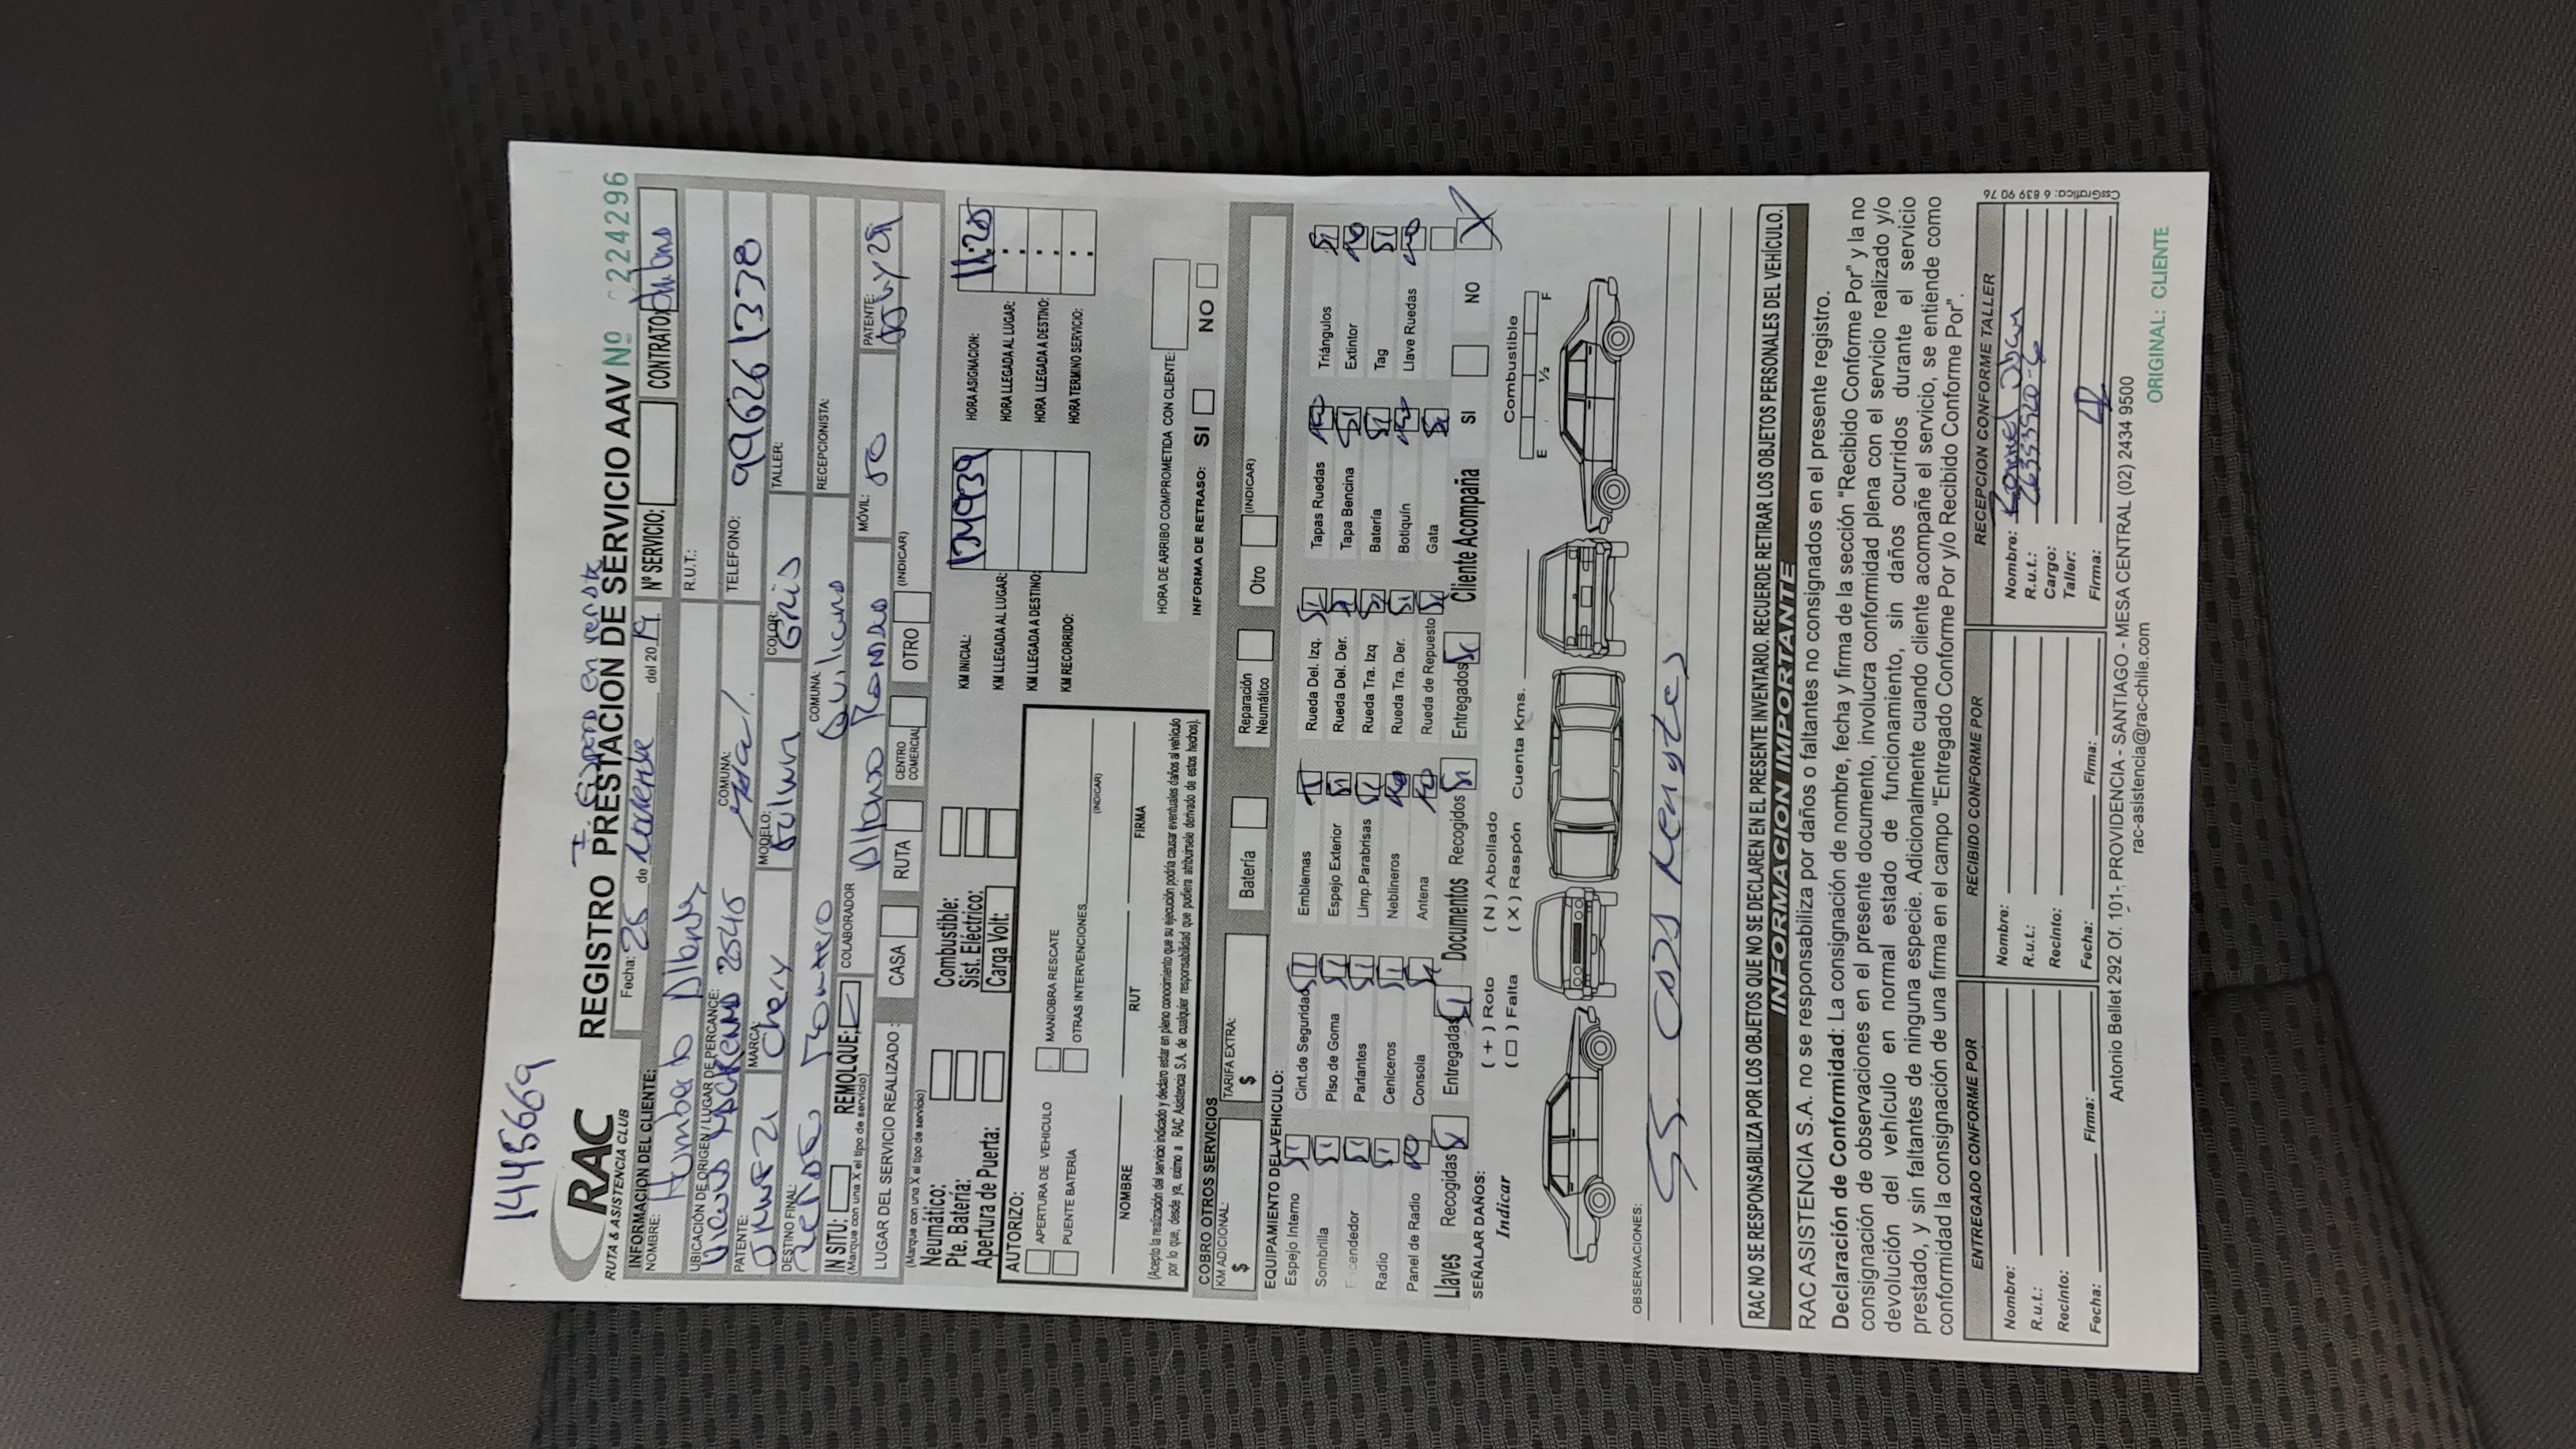 1445669
RAC
RUTA & ASISTENCIA CLUB
en
REGISTRO PRESTACION DE SERVICIO AAV Nº 224296
Fecha: 26 de del 20 19
Nº SERVICIO:
CONTRATO:
INFORMACION DEL CLIENTE:
NOMBRE: Humberto
R.U.T.:
UBICACIÓN DE ORIGEN / LUGAR DE PERCANCE: 2545
COMUNA:
TELEFONO: 996261338
PATENTE:
MARCA: Chery
MODELO: Fulwin
COLOR: Gris
TALLER:
DESTINO FINAL: Romero
COMUNA: Quilicura
RECEPCIONISTA:
IN SITU:
REMOLQUE:
(Marque con una X el tipo de servicio)
COLABORADOR
MÓVIL: 50
PATENTE:
LUGAR DEL SERVICIO REALIZADO:
CASA
RUTA
CENTRO COMERCIAL
OTRO
(INDICAR)
(Marque con una X el tipo de servicio)
Neumático:
Combustible:
Pte. Batería:
Sist. Eléctrico:
Apertura de Puerta:
Carga Volt:
KM INICIAL: 134939
KM LLEGADA AL LUGAR:
KM LLEGADA A DESTINO:
KM RECORRIDO:
HORA ASIGNACION: 11:25
HORA LLEGADA AL LUGAR:
HORA LLEGADA A DESTINO:
HORA TERMINO SERVICIO:
AUTORIZO:
APERTURA DE VEHICULO
MANIOBRA RESCATE
PUENTE BATERÍA
OTRAS INTERVENCIONES
(INDICAR)
NOMBRE
RUT
FIRMA
(Acepto la realización del servicio indicado y declaro estar en pleno conocimiento que su ejecución podría causar eventuales daños al vehículo
por lo que, desde ya, eximo a RAC Asistencia S.A. de cualquier responsabilidad que pudiera atribuírsele derivado de estos hechos).
HORA DE ARRIBO COMPROMETIDA CON CLIENTE:
INFORMA DE RETRASO: SI NO
COBRO OTROS SERVICIOS
KM ADICIONAL:
$
TARIFA EXTRA:
$
Batería
Reparación Neumático
Otro
(INDICAR)
EQUIPAMIENTO DEL VEHICULO:
Espejo Interno SI Cint.de Seguridad SI Emblemas SI Rueda Del. Izq. SI Tapas Ruedas NO Triángulos SI
Sombrilla SI Piso de Goma SI Espejo Exterior SI Rueda Del. Der. SI Tapa Bencina SI Extintor NO
Encendedor SI Parlantes SI Limp.Parabrisas SI Rueda Tra. Izq SI Batería SI Tag SI
Radio SI Ceniceros SI Neblineros NO Rueda Tra. Der. SI Botiquín NO Llave Ruedas NO
Panel de Radio NO Consola SI Antena NO Rueda de Repuesto SI Gata SI
Llaves Recogidas SI Entregadas SI Documentos Recogidos SI Entregados SI Cliente Acompaña SI NO X
SEÑALAR DAÑOS:
Indicar
( + ) Roto
( N ) Abollado
( □ ) Falta
( X ) Raspón
Cuenta Kms.
Combustible
E ½ F
OBSERVACIONES:
RAC NO SE RESPONSABILIZA POR LOS OBJETOS QUE NO SE DECLAREN EN EL PRESENTE INVENTARIO. RECUERDE RETIRAR LOS OBJETOS PERSONALES DEL VEHÍCULO.
INFORMACION IMPORTANTE
RAC ASISTENCIA S.A. no se responsabiliza por daños o faltantes no consignados en el presente registro.
Declaración de Conformidad: La consignación de nombre, fecha y firma de la sección "Recibido Conforme Por" y la no
consignación de observaciones en el presente documento, involucra conformidad plena con el servicio realizado y/o
devolución del vehículo en normal estado de funcionamiento, sin daños ocurridos durante el servicio
prestado, y sin faltantes de ninguna especie. Adicionalmente cuando cliente acompañe el servicio, se entiende como
conformidad la consignación de una firma en el campo "Entregado Conforme Por y/o Recibido Conforme Por".
ENTREGADO CONFORME POR
Nombre:
R.u.t.:
Recinto:
Fecha: Firma:
RECIBIDO CONFORME POR
Nombre:
R.u.t.:
Recinto:
Fecha: Firma:
RECEPCION CONFORME TALLER
Nombre:
R.u.t.:
Cargo:
Taller:
Firma:
CssGrafica: 6 839 90 76
Antonio Bellet 292 Of. 101- PROVIDENCIA - SANTIAGO - MESA CENTRAL (02) 2434 9500
rac-asistencia@rac-chile.com
ORIGINAL: CLIENTE